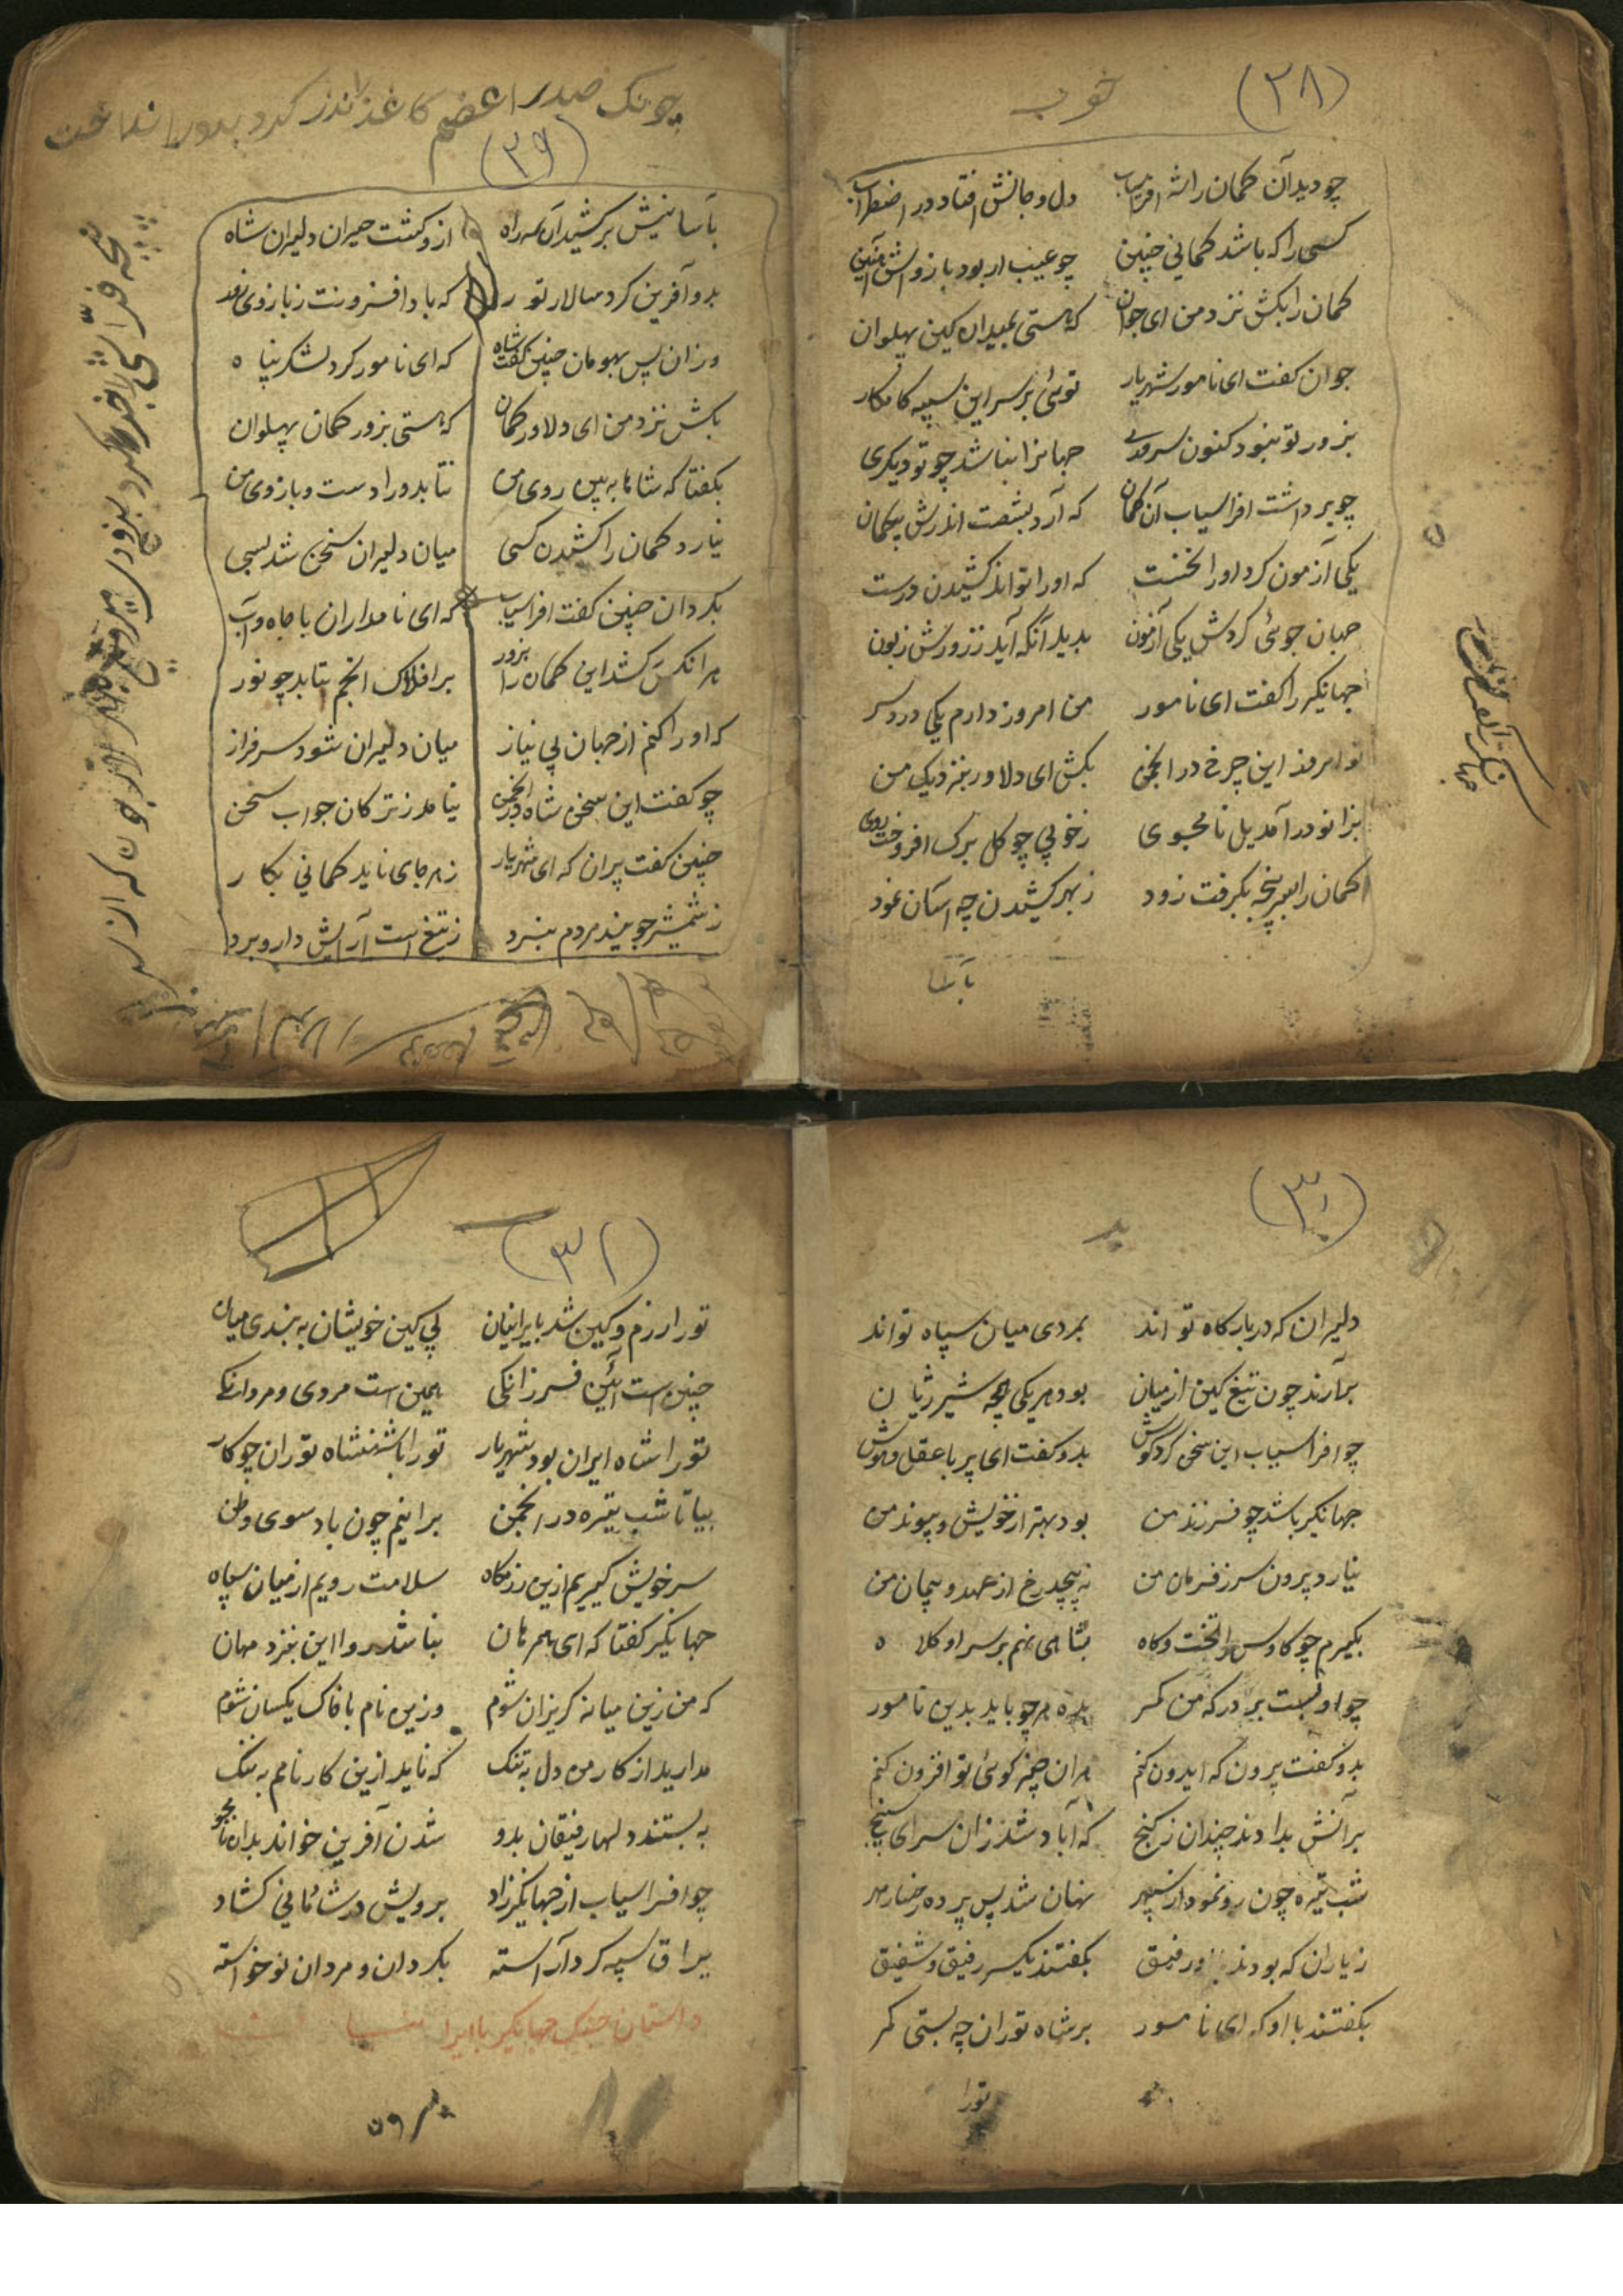 (۲۸)
خوب
چو دید آن کمان را شه افراسیاب دل و جانش افتاد در اضطراب
کسی را که باشد کمانی چنین چو عیب ار بود بازواش آهنین
کمان را بکش نزد من ای جوان که هستی بمیدان کین پهلوان
جوان گفت ای نامور شهریار توئی بر سر این سپه کامکار
بزور تو نبود کنون سروری جهانرا نباشد چو تو دیگری
چو برداشت افراسیاب آن کمان که آرد بشصت اندرش بیکمان
یکی آزمون کرد او را نخست که او را تواند کشیدن درست
جهان جوئی کردش یکی آزمون بدید آنکه آید ز زورش زبون
جهانگیر را گفت ای نامور من امروز دارم یکی درد سر
تو امروز این چرخ در انجمن بکش ای دلاور بنزدیک من
بزانو در آمد یل نامجوی ز خوبی چو گل برک افروخت روی
کمان را بسر پنجه بگرفت زود ز بهر کشیدن چه آسان نمود
بآسا
چونک صدر اعظم کاغذ لندز کرد بدور انداخت
(۲۹)
بآسانیش بر کشید آن سه راه ازو گشت حیران دلیران شاه
بدو آفرین کرد سالار تور که بادا فزونت ز بازوی زور
وزان پس بهومان چنین گفت شاه که ای نامور گرد لشکر پناه
بکش نزد من ای دلاور کمان که هستی بزور کمان پهلوان
بگفتا که شاها به بین روی من نتابد ورا دست و بازوی من
نیارد کمان را کشیدن کسی میان دلیران سخن شد بسی
بگردان چنین گفت افراسیاب که ای نامداران با جاه و آب
هر انکس کشد این کمان را بزور بر افلاک انجم بتابد چو نور
که او را کنم از جهان بی نیاز میان دلیران شود سرفراز
چو گفت این سخن شاه در انجمن نیامد ز ترکان جواب سخن
چنین گفت پیران که ای شهریار ز هر جای ناید کمانی بکار
ز شمشیر جویند مردم نبرد ز تیغ است آرایش دار و برد
(۳۰)
دلیران که در بارگاه تواند بمردی میان سپاه تواند
برآرند چون تیغ کین از میان بود هر یکی بچه شیر ژیان
چو افراسیاب این سخن کرد گوش بدو گفت ای پیر با عقل و هوش
جهانگیر باشد چو فرزند من بود بهتر از خویش و پیوند من
نیارد برون سر ز فرمان من نه پیچد رخ از عهد و پیمان من
بگیرم چو کاوس را تخت و گاه بشاهی نهم بر سر او کلاه
چو او بست بر درگه من کمر بده هر چو باید بدین نامور
بدو گفت پیرون که ایدون کنم هران چیز گوئی تو افزون کنم
برآنش بدادند چندان ز گنج که آباد شد زان سرای سپنج
شب تیره چون رو نمود از سپهر نهان شد پس پرده رخسار مهر
ز یاران که بودند با او رفیق بگفتند یکسر رفیق و شفیق
بگفتند با او که ای نامور بر شاه توران چه بستی کمر
تورا
(۳۱)
تورا رزم و کین شد بایرانیان پی کین خویشان به بندی میان
چنین است آئین فرزانگی همین است مردی و مردانگی
تورا شاه ایران بود شهریار تورا با شهنشاه توران چو کار
بیا تا شب تیره در انجمن برانیم چون باد سوی وطن
سر خویش گیریم ازین رزمگاه سلامت رویم از میان سپاه
جهانگیر گفتا که ای همرهان نباشد روا این بنزد مهان
که من زین میانه گریزان شوم وزین نام با خاک یکسان شوم
مدارید از کار من دل به تنگ که ناید ازین کار نامم به ننگ
به بستند دلها رفیقان بدو شدن آفرین خواند بدان نامجو
چو افراسیاب از جهانگیر زاد برویش در شادمانی گشاد
یراق سپه کرد آراسته بگردان و مردان نوخواسته
داستان جنگ جهانگیر با ایرا